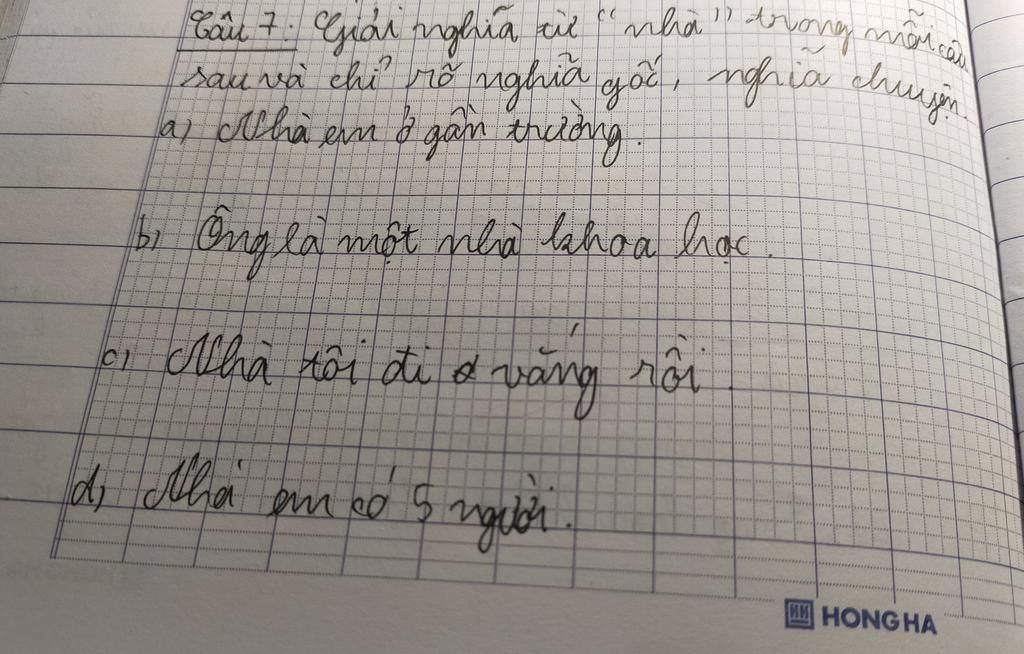 Câu 7: Giải nghĩa từ "nhà" trong mỗi câu
sau và chỉ rõ nghĩa gốc, nghĩa chuyển.
a) Nhà em ở gần trường.
b) Ông là một nhà khoa học.
c) Nhà tôi đi vắng rồi.
d) Nhà em có 5 người.
HH HONG HA